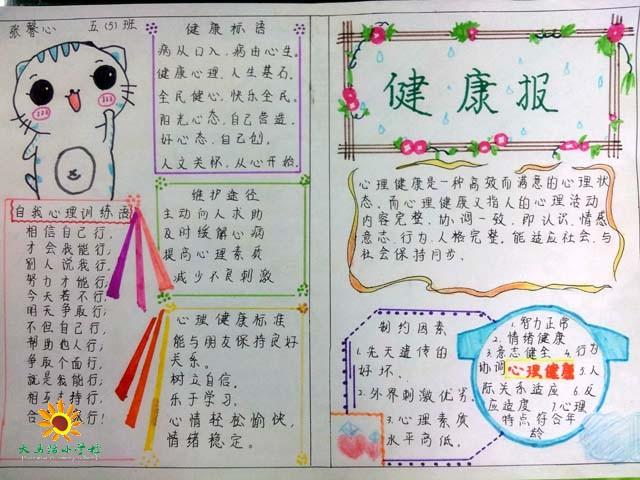 张馨心 五(5)班
健康标语
病从口入,病由心生。
健康心理,人生基石。
全民健心,快乐全民。
阳光心态,自己营造,
好心态,自己创。
人文关怀,从心开始。
自我心理训练语
相信自己行,
才会我能行;
别人说我行,
努力才能行;
今天若不行,
明天争取行;
不但自己行,
帮助他人行;
争取个面行,
就是我能行;
相互支持行,
行!
大
小学校
维护途径
主动向人求助
及时缓解心病
提高心理素质
减少不良刺激
心理健康标准
能与朋友保持良好
关系。
树立自信。
乐于学习。
心情轻松愉快,
情绪稳定。
健康报
心理健康是一种高效而满意的心理状
态,而心理健康又指人的心理活动
内容完整,协调一致,即认识、情感
意志、行为、人格完整,能适应社会,与
社会保持同步。
制约因素
1.先天遗传的
好坏、
2.外界刺激优劣。
3.心理素质
水平高低。
1.智力正常
2.情绪健康
3.意志健全 4.行为
协调 心理健康 5.人
际关系适应 6.反
应适度 7.心理
特点符合年
龄